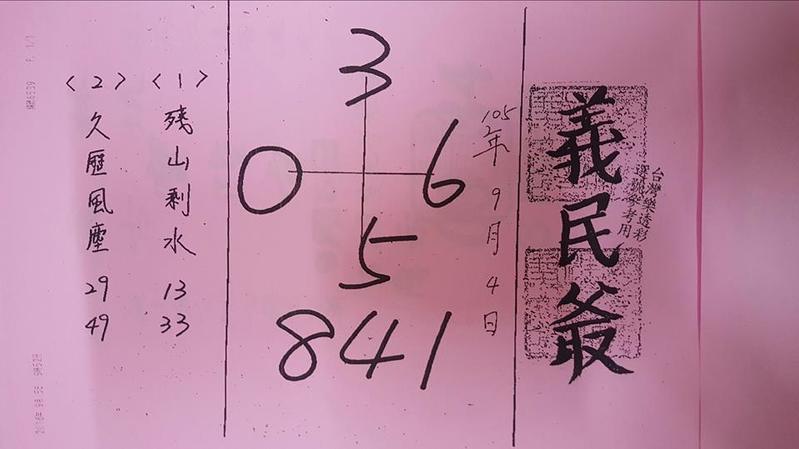 義民爺
台灣樂透彩
選號參考用
105年9月4日
3
0 6
5
841
〈1〉
残山剩水
13
33
〈2〉
久歷風塵
29
49
P. 1/1